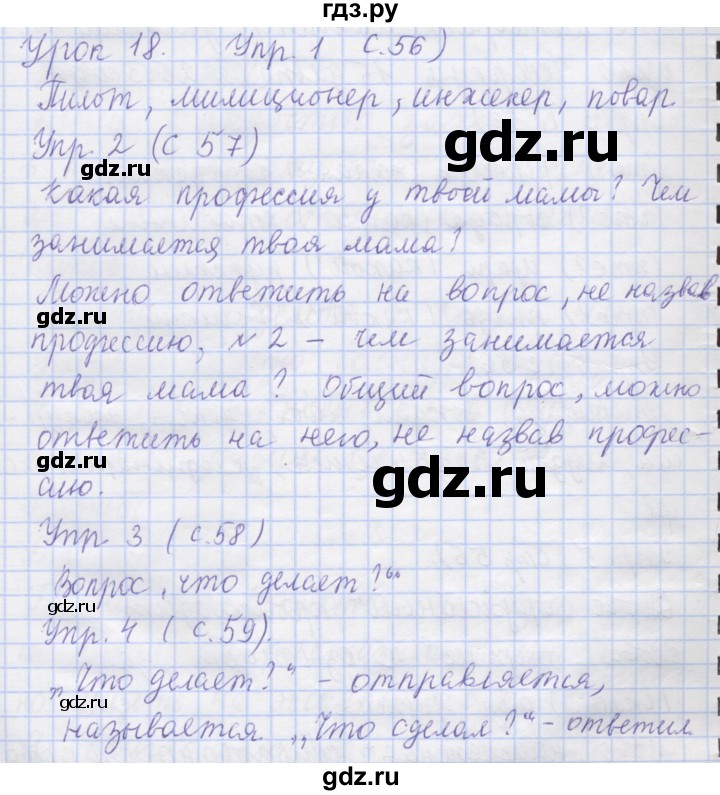 гдз.ру
Урок 18. Упр. 1 с.56)
Пилот, милиционер, инженер, повар
Упр. 2 (с 57)
gdz.ru
gdz.ru
Какая профессия у твоей мамы? Чем
занимается твоя мама?
Можно ответить на вопрос, не назвав
gdz.ru
профессию, № 2 – чем занимается
твоя мама? Общий вопрос, можно
ответить на него, не назвав профес-
gdz.ru
gdz.ru
сию.
Упр 3 (с.58)
Вопрос, что делает?“
gdz.ru
Упр. 4 (с.59).
„Что делает?“ - отправляется,
называется „Что сделал?“ - ответил
gdz.ru
gdz.ru